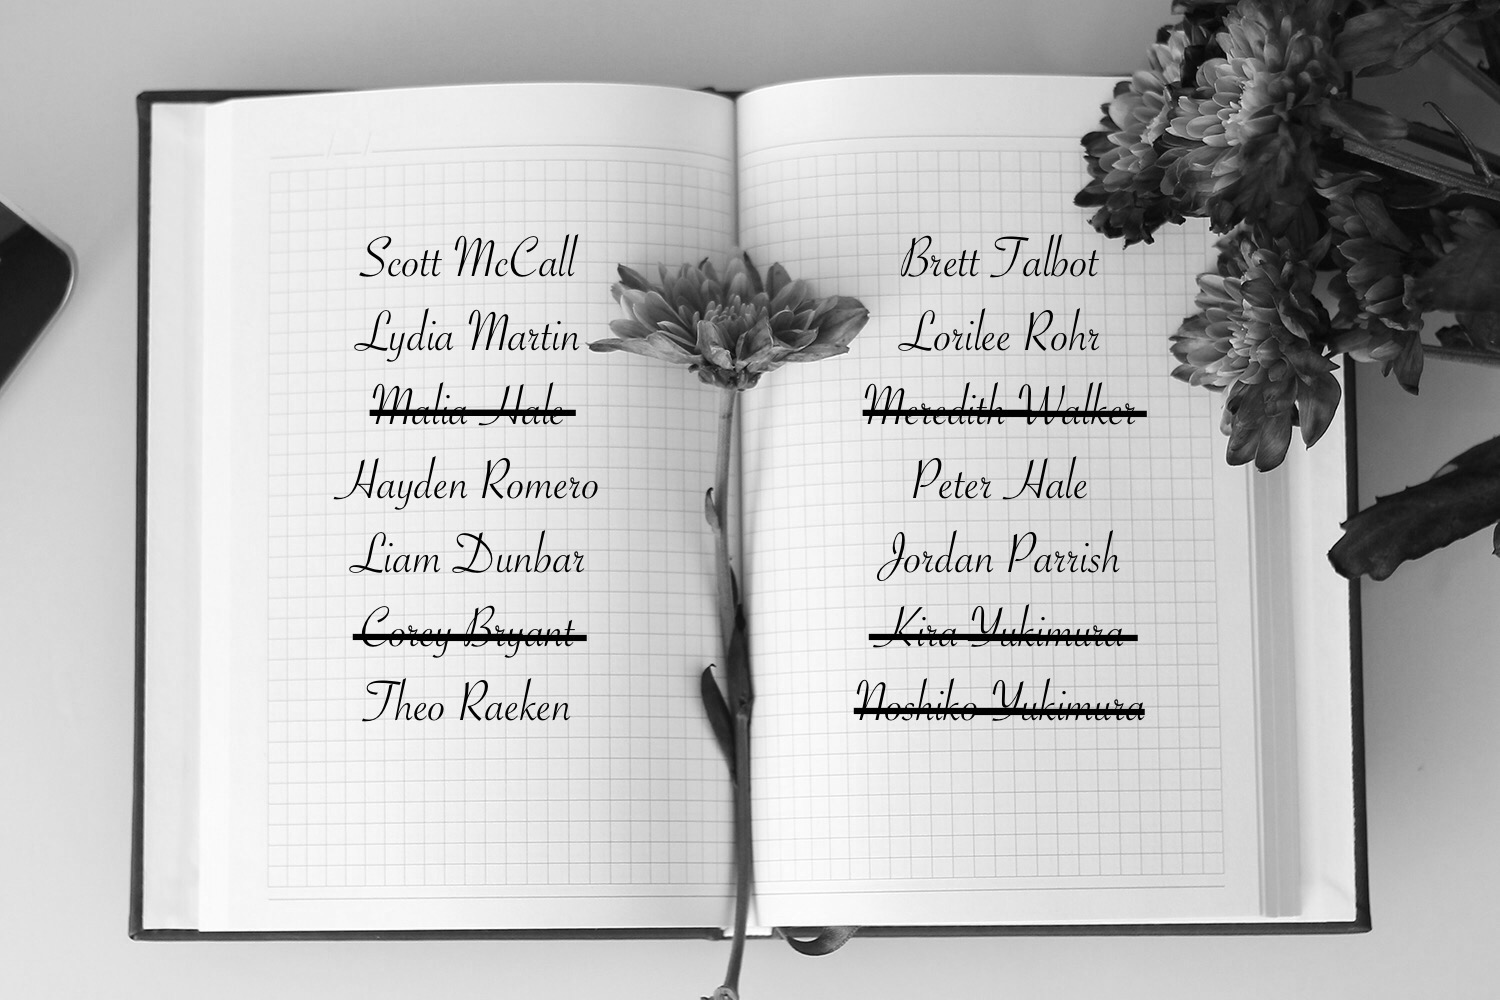 Scott McCall
Lydia Martin
Malia Hale
Hayden Romero
Liam Dunbar
Corey Bryant
Theo Raeken
Brett Talbot
Lorilee Rohr
Meredith Walker
Peter Hale
Jordan Parrish
Kira Yukimura
Noshiko Yukimura